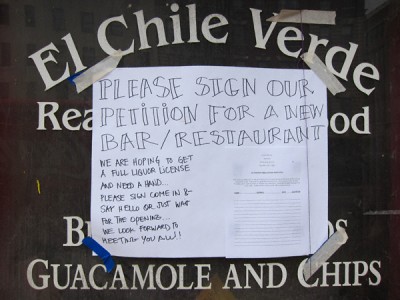 El Chile Verde
PLEASE SIGN OUR
PETITION FOR A NEW
BAR/RESTAURANT
WE ARE HOPING TO GET
A FULL LIQUOR LICENSE
AND NEED A HAND...
PLEASE SIGN COME IN &
SAY HELLO OR JUST WAIT
FOR THE OPENING...
WE LOOK FORWARD TO
MEETING YOU ALL!
GUACAMOLE AND CHIPS